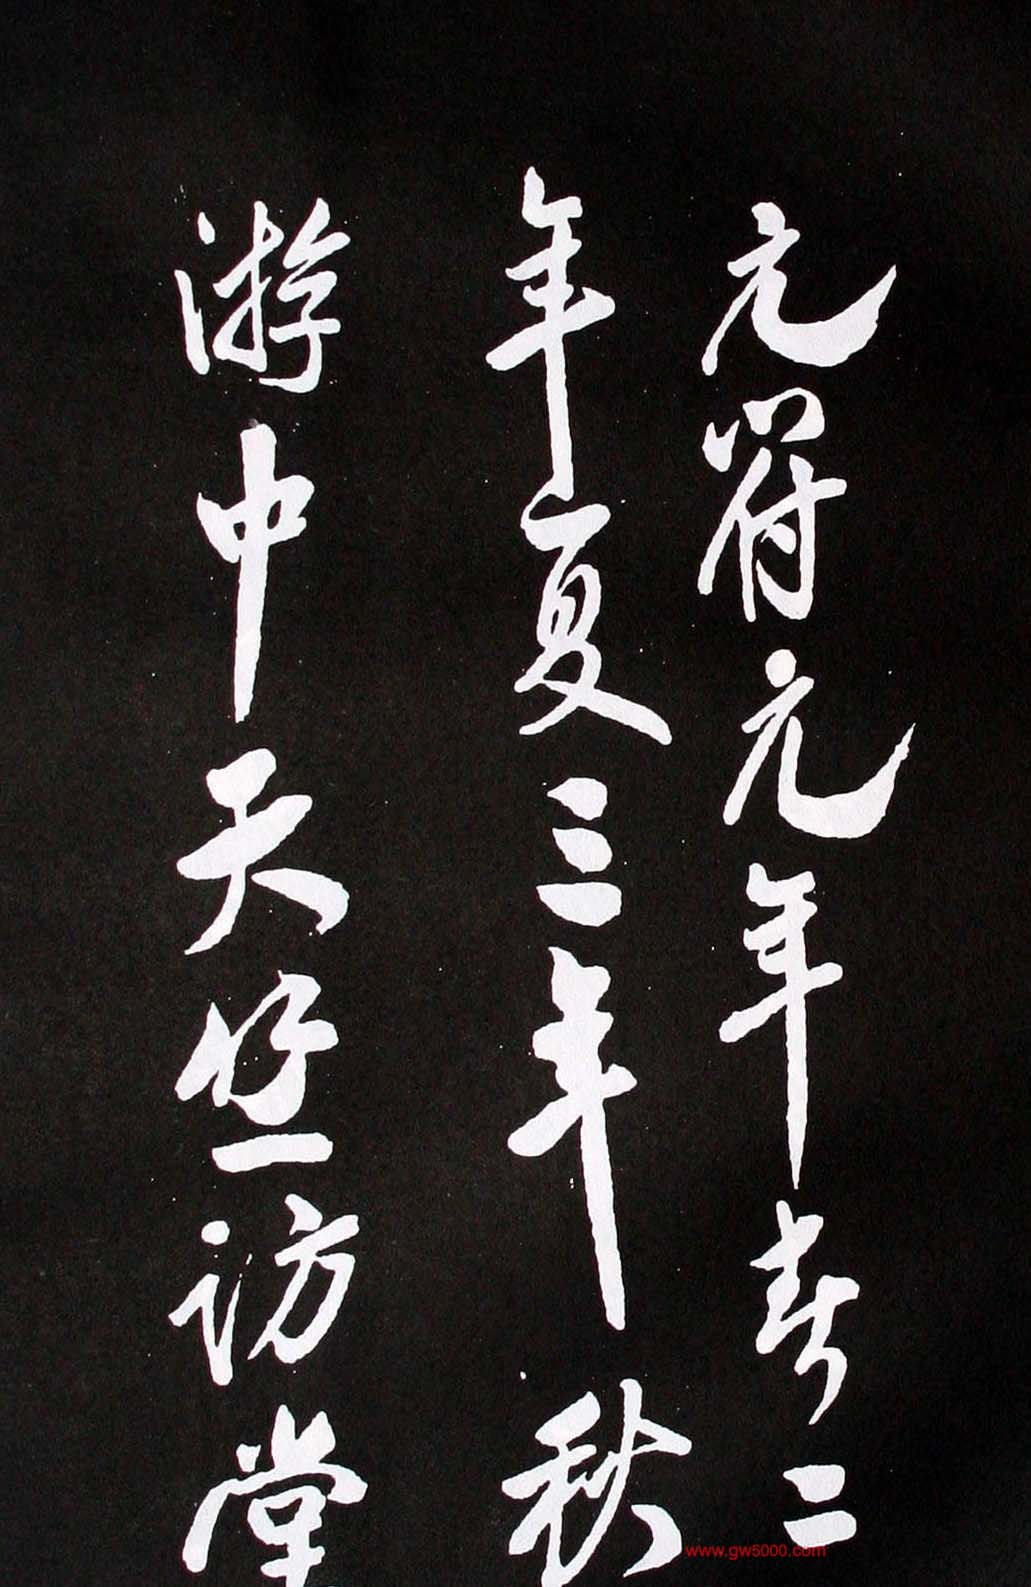 元符元年春二
年夏三年秋
游中天竺一访堂
www.gw5000.com